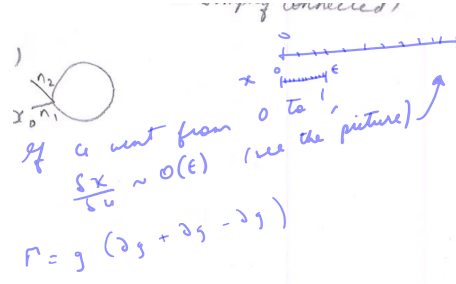 simply connected)
)
n₂
x₀ n₁
0
x 0 ϵ
If u went from 0 to 1,
δx/δu ~ O(ϵ) (see the picture)
Γ = g (∂g + ∂g - ∂g)